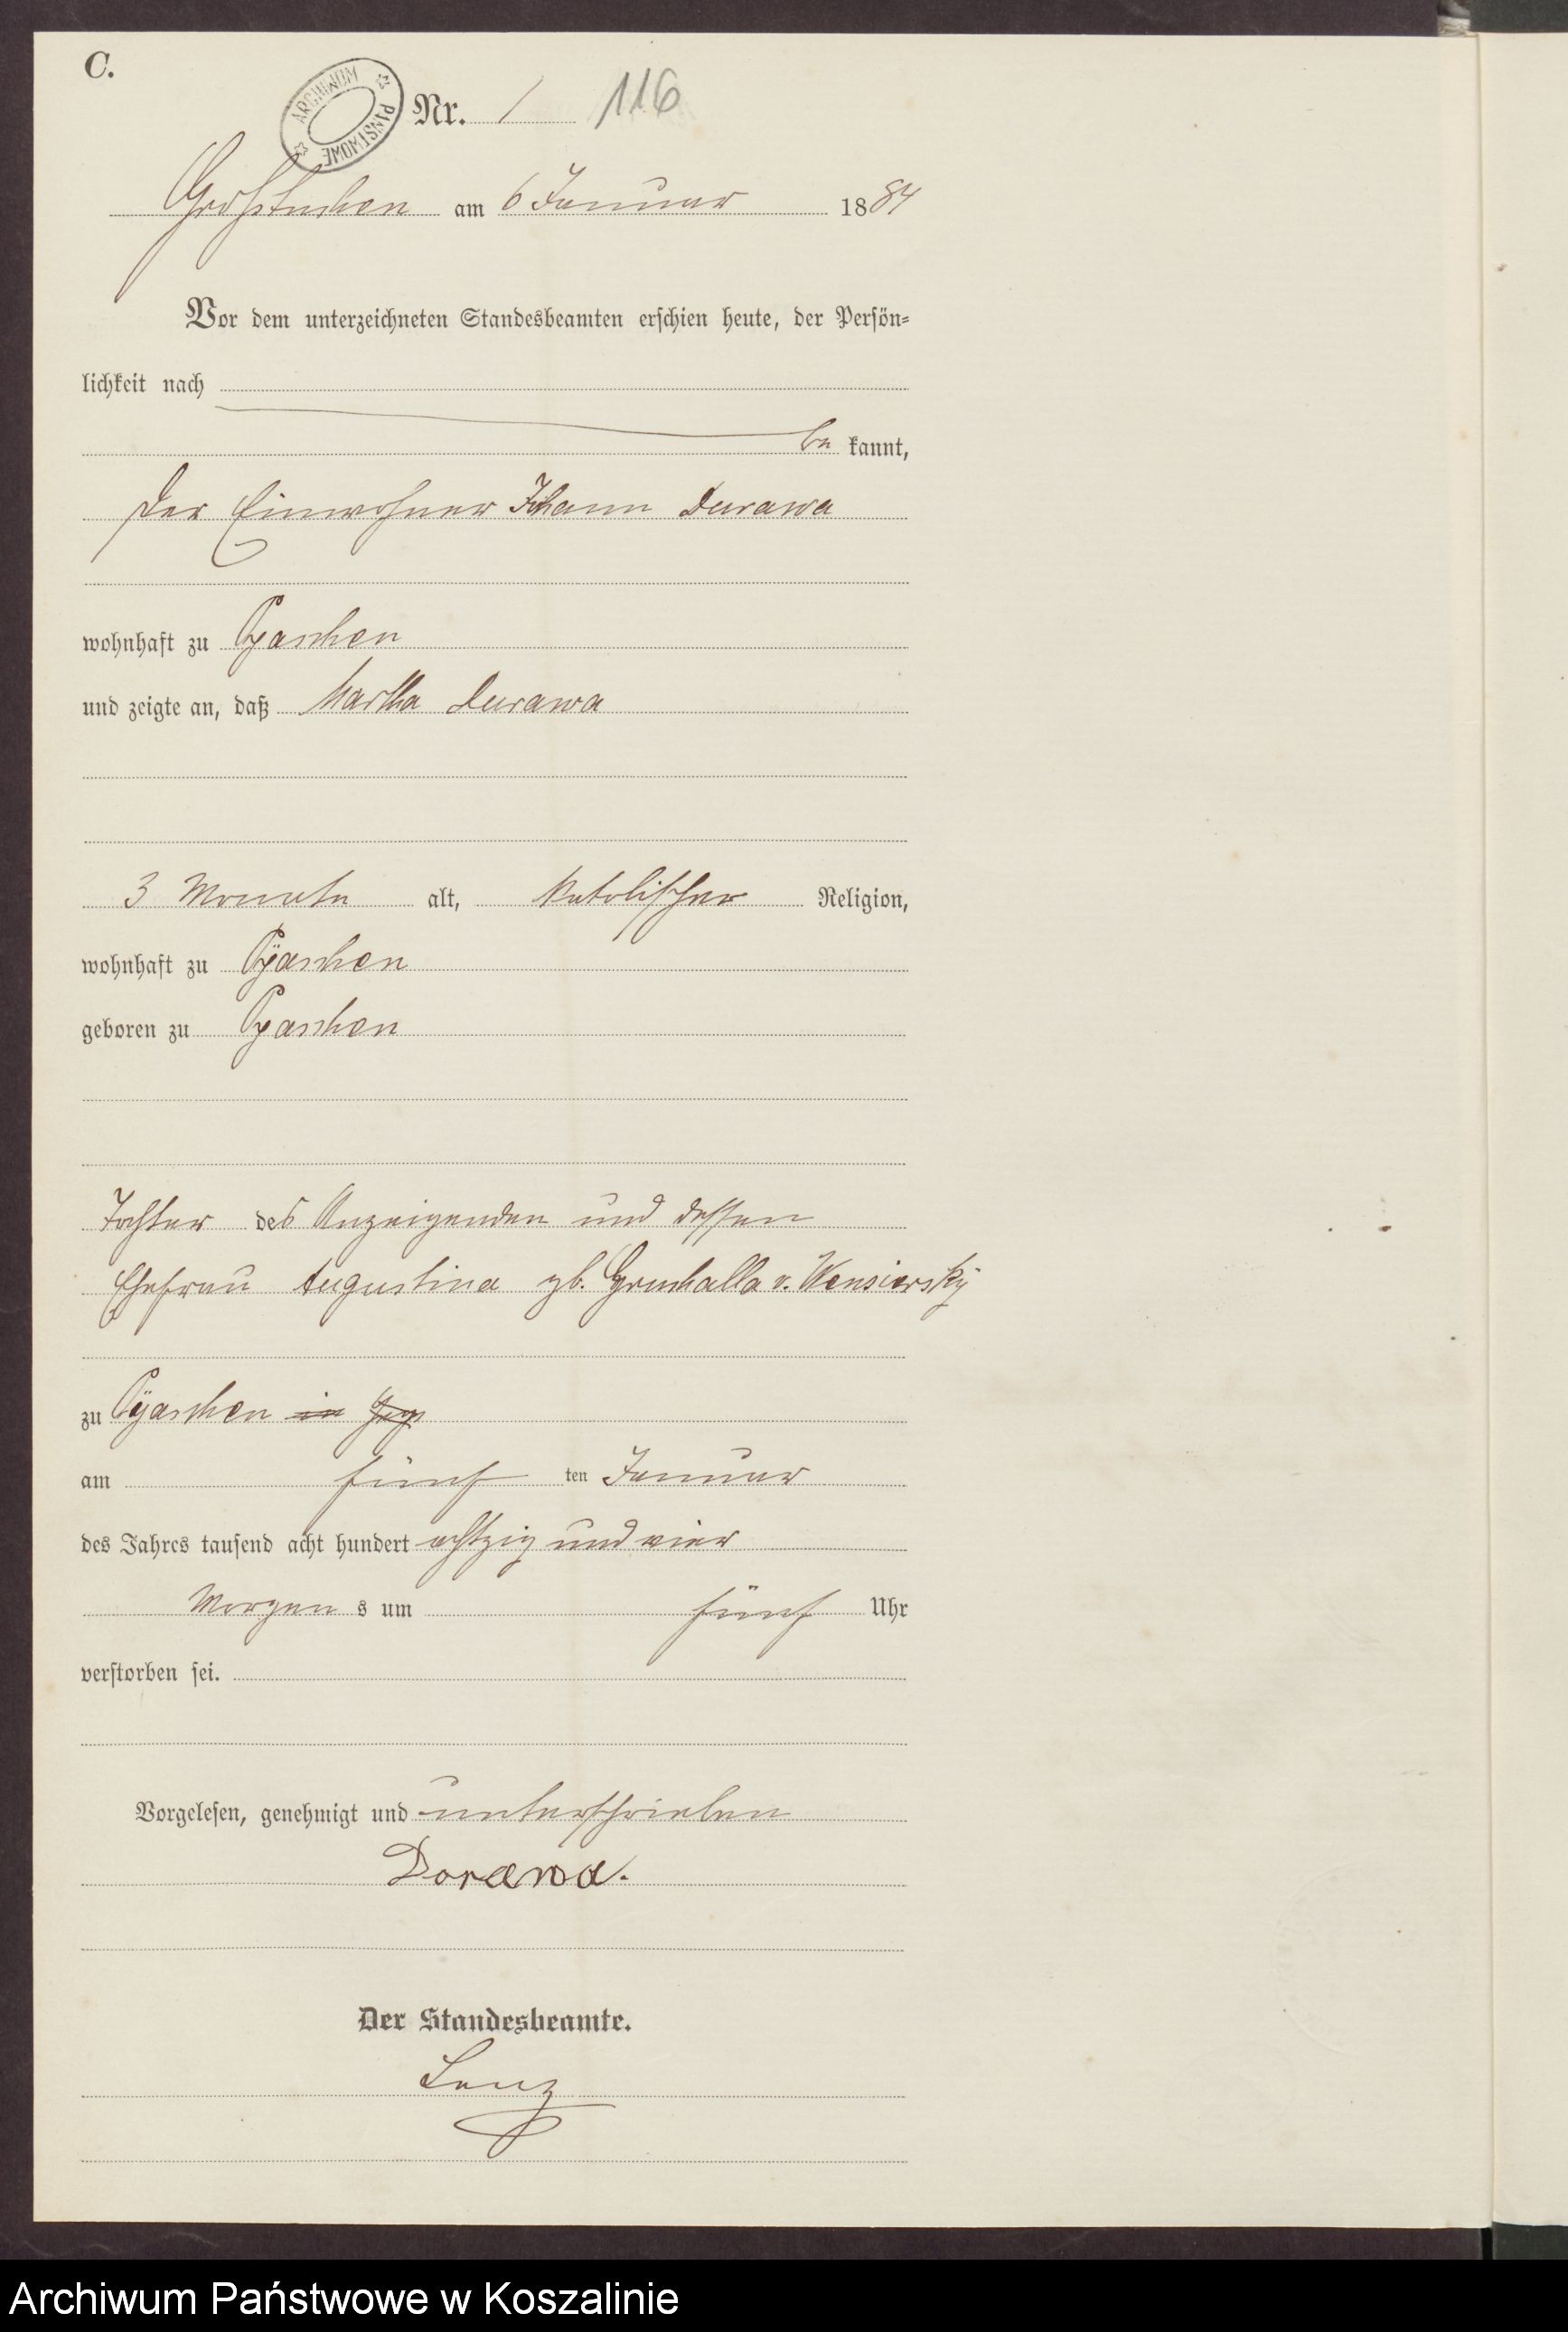 C.
ARCHIWUM PAŃSTWOWE
Nr. 1 116
Großtuchen am 6 Januar 1884
Vor dem unterzeichneten Standesbeamten erschien heute, der Persön-
lichkeit nach
be kannt,
der Einwohner Johann Durawa
wohnhaft zu Pyaschen
und zeigte an, daß Martha Durawa
3 Monate alt, katolischer Religion,
wohnhaft zu Pyaschen
geboren zu Pyaschen
Tochter des Anzeigenden und dessen
Ehefrau Augustina gb. v. Wensiersky
zu Pyaschen in
am fünf ten Januar
des Jahres tausend acht hundert achtzig und vier
Morgen s um fünf Uhr
verstorben sei.
Vorgelesen, genehmigt und unterschrieben
Dorawa.
Der Standesbeamte.
Lenz
Archiwum Państwowe w Koszalinie